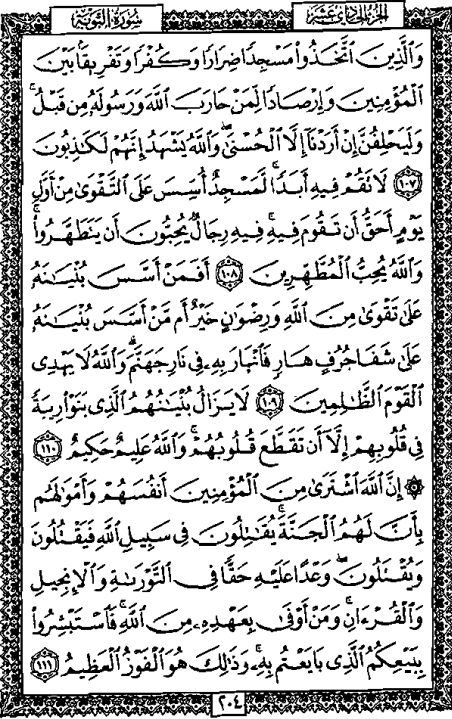 سُورَةُ التَّوْبَةِ
الجُزءُ الحَادِي عَشَر
وَالَّذِينَ اتَّخَذُوا مَسْجِدًا ضِرَارًا وَكُفْرًا وَتَفْرِيقًا بَيْنَ
الْمُؤْمِنِينَ وَإِرْصَادًا لِّمَنْ حَارَبَ اللَّهَ وَرَسُولَهُ مِن قَبْلُ ۚ
وَلَيَحْلِفُنَّ إِنْ أَرَدْنَا إِلَّا الْحُسْنَىٰ ۖ وَاللَّهُ يَشْهَدُ إِنَّهُمْ لَكَاذِبُونَ
﴿١٠٧﴾ لَا تَقُمْ فِيهِ أَبَدًا ۚ لَّمَسْجِدٌ أُسِّسَ عَلَى التَّقْوَىٰ مِنْ أَوَّلِ
يَوْمٍ أَحَقُّ أَن تَقُومَ فِيهِ ۚ فِيهِ رِجَالٌ يُحِبُّونَ أَن يَتَطَهَّرُوا ۚ
وَاللَّهُ يُحِبُّ الْمُطَّهِّرِينَ ﴿١٠٨﴾ أَفَمَنْ أَسَّسَ بُنْيَانَهُ
عَلَىٰ تَقْوَىٰ مِنَ اللَّهِ وَرِضْوَانٍ خَيْرٌ أَم مَّنْ أَسَّسَ بُنْيَانَهُ
عَلَىٰ شَفَا جُرُفٍ هَارٍ فَانْهَارَ بِهِ فِي نَارِ جَهَنَّمَ ۗ وَاللَّهُ لَا يَهْدِي
الْقَوْمَ الظَّالِمِينَ ﴿١٠٩﴾ لَا يَزَالُ بُنْيَانُهُمُ الَّذِي بَنَوْا رِيبَةً
فِي قُلُوبِهِمْ إِلَّا أَن تَقَطَّعَ قُلُوبُهُمْ ۗ وَاللَّهُ عَلِيمٌ حَكِيمٌ ﴿١١٠﴾
۞ إِنَّ اللَّهَ اشْتَرَىٰ مِنَ الْمُؤْمِنِينَ أَنفُسَهُمْ وَأَمْوَالَهُم
بِأَنَّ لَهُمُ الْجَنَّةَ ۚ يُقَاتِلُونَ فِي سَبِيلِ اللَّهِ فَيَقْتُلُونَ
وَيُقْتَلُونَ ۖ وَعْدًا عَلَيْهِ حَقًّا فِي التَّوْرَاةِ وَالْإِنجِيلِ
وَالْقُرْآنِ ۚ وَمَنْ أَوْفَىٰ بِعَهْدِهِ مِنَ اللَّهِ ۚ فَاسْتَبْشِرُوا
بِبَيْعِكُمُ الَّذِي بَايَعْتُم بِهِ ۚ وَذَٰلِكَ هُوَ الْفَوْزُ الْعَظِيمُ ﴿١١١﴾
٢٠٤